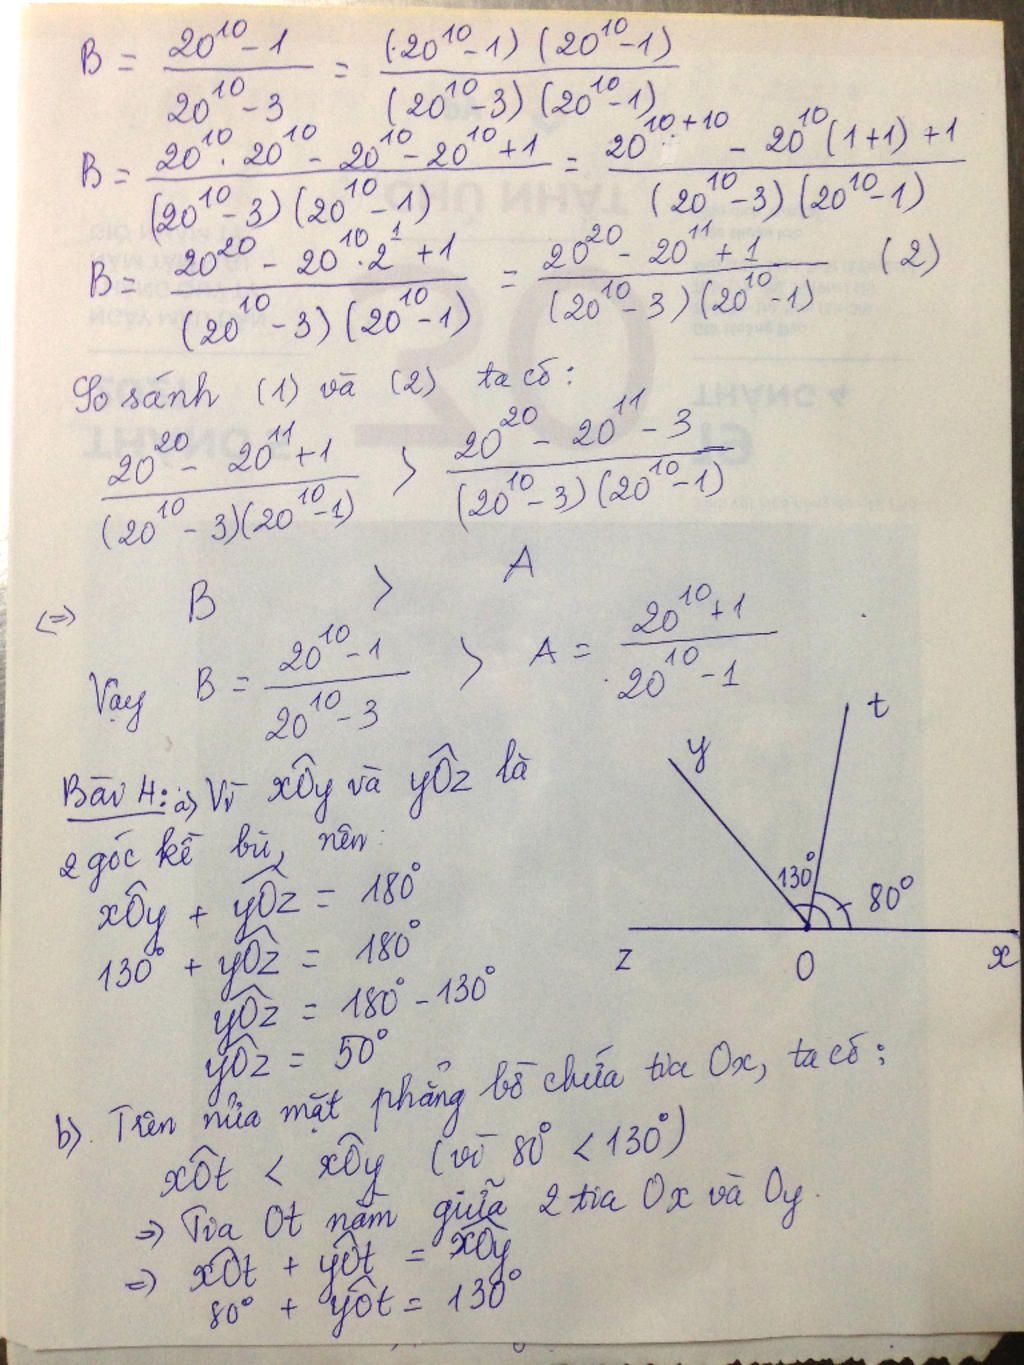 B = \frac{20^{10} - 1}{20^{10} - 3} = \frac{(20^{10} - 1)(20^{10} - 1)}{(20^{10} - 3)(20^{10} - 1)}
B = \frac{20^{10} . 20^{10} - 20^{10} - 20^{10} + 1}{(20^{10} - 3)(20^{10} - 1)} = \frac{20^{10+10} - 20^{10}(1+1) + 1}{(20^{10} - 3)(20^{10} - 1)}
B = \frac{20^{20} - 20^{10} . 2^{1} + 1}{(20^{10} - 3)(20^{10} - 1)} = \frac{20^{20} - 20^{11} + 1}{(20^{10} - 3)(20^{10} - 1)} (2)
So sánh (1) và (2) ta có:
\frac{20^{20} - 20^{11} + 1}{(20^{10} - 3)(20^{10} - 1)} > \frac{20^{20} - 20^{11} - 3}{(20^{10} - 3)(20^{10} - 1)}
<=> B > A
Vậy B = \frac{20^{10} - 1}{20^{10} - 3} > A = \frac{20^{10} + 1}{20^{10} - 1}
Bài 4: a) Vì xÔy và yÔz là
2 góc kề bù, nên:
xÔy + yÔz = 180°
130° + yÔz = 180°
yÔz = 180° - 130°
yÔz = 50°
t
y
130°
80°
z O x
b). Trên nửa mặt phẳng bờ chứa tia Ox, ta có:
xÔt < xÔy (vì 80° < 130°)
=> Tia Ot nằm giữa 2 tia Ox và Oy.
=> xÔt + yÔt = xÔy
80° + yÔt = 130°
CHỦ NHẬT
30
THÁNG 4
19